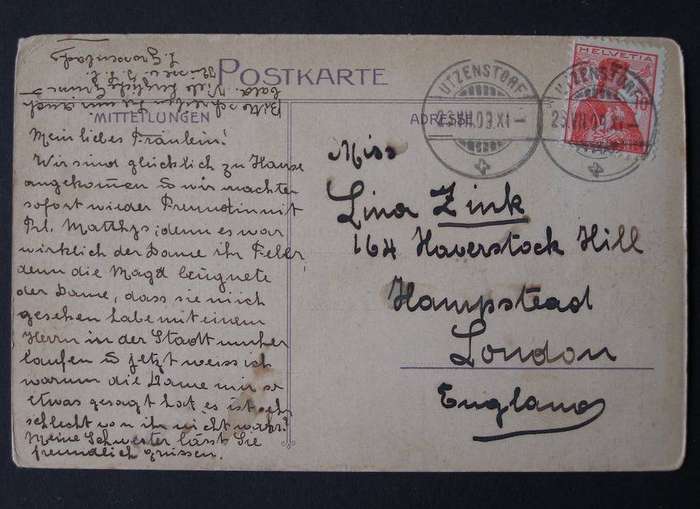 POSTKARTE
MITTEILUNGEN
ADRESSE
HELVETIA
10
UTZENSTORF
23.VII.09.XI-
UTZENSTORF
23.VII.09.XI-
Miss
Lina Zink
164 Haverstock Hill
Hampstead
London
England
Mein liebes Fräulein!
Wir sind glücklich zu Hause
angekommen & wir machten
sofort wieder Freundin mit
Frl. Matthys; denn es war
wirklich der Dame ihr Fehler
denn die Magd beugnete
der Dame, dass sie mich
gesehen habe mit einem
Herrn in der Stadt umher
laufen & jetzt weiss ich
warum die Dame mir so
etwas gesagt hat, es ist sehr
schlecht von ihr nicht wahr?
Meine Schwester lässt Sie
freundlich grüssen.
Bitte schreiben Sie mir auch
bald. Viele herzliche Grüsse